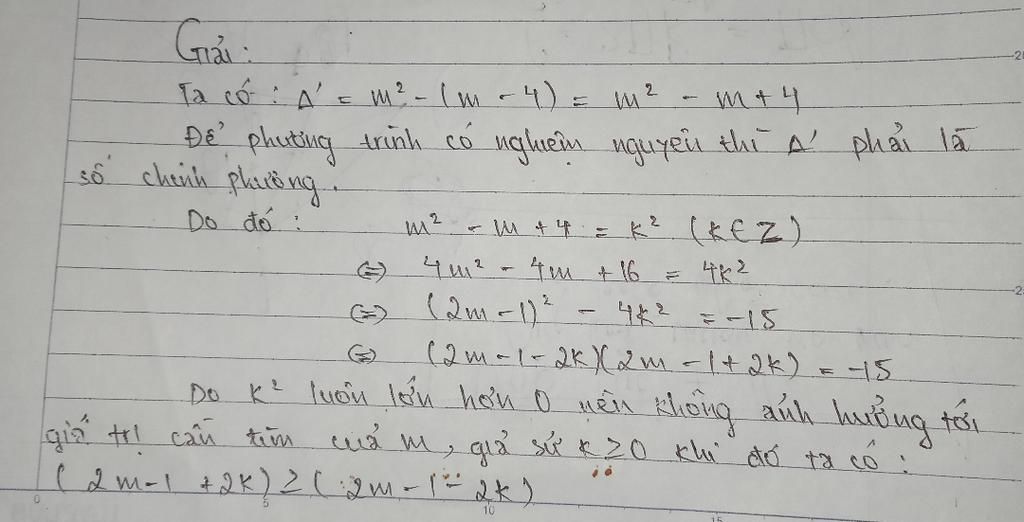 Giải:
Ta có: Δ' = m² - (m - 4) = m² - m + 4
Để phương trình có nghiệm nguyên thì Δ' phải là
số chính phương.
Do đó: m² - m + 4 = k² (k ∈ Z)
⇔ 4m² - 4m + 16 = 4k²
⇔ (2m - 1)² - 4k² = -15
⇔ (2m - 1 - 2k)(2m - 1 + 2k) = -15
Do k² luôn lớn hơn 0 nên không ảnh hưởng tới
giá trị cần tìm của m, giả sử k ≥ 0 khi đó ta có:
(2m - 1 + 2k) ≥ (2m - 1 - 2k)
0 5 10 15